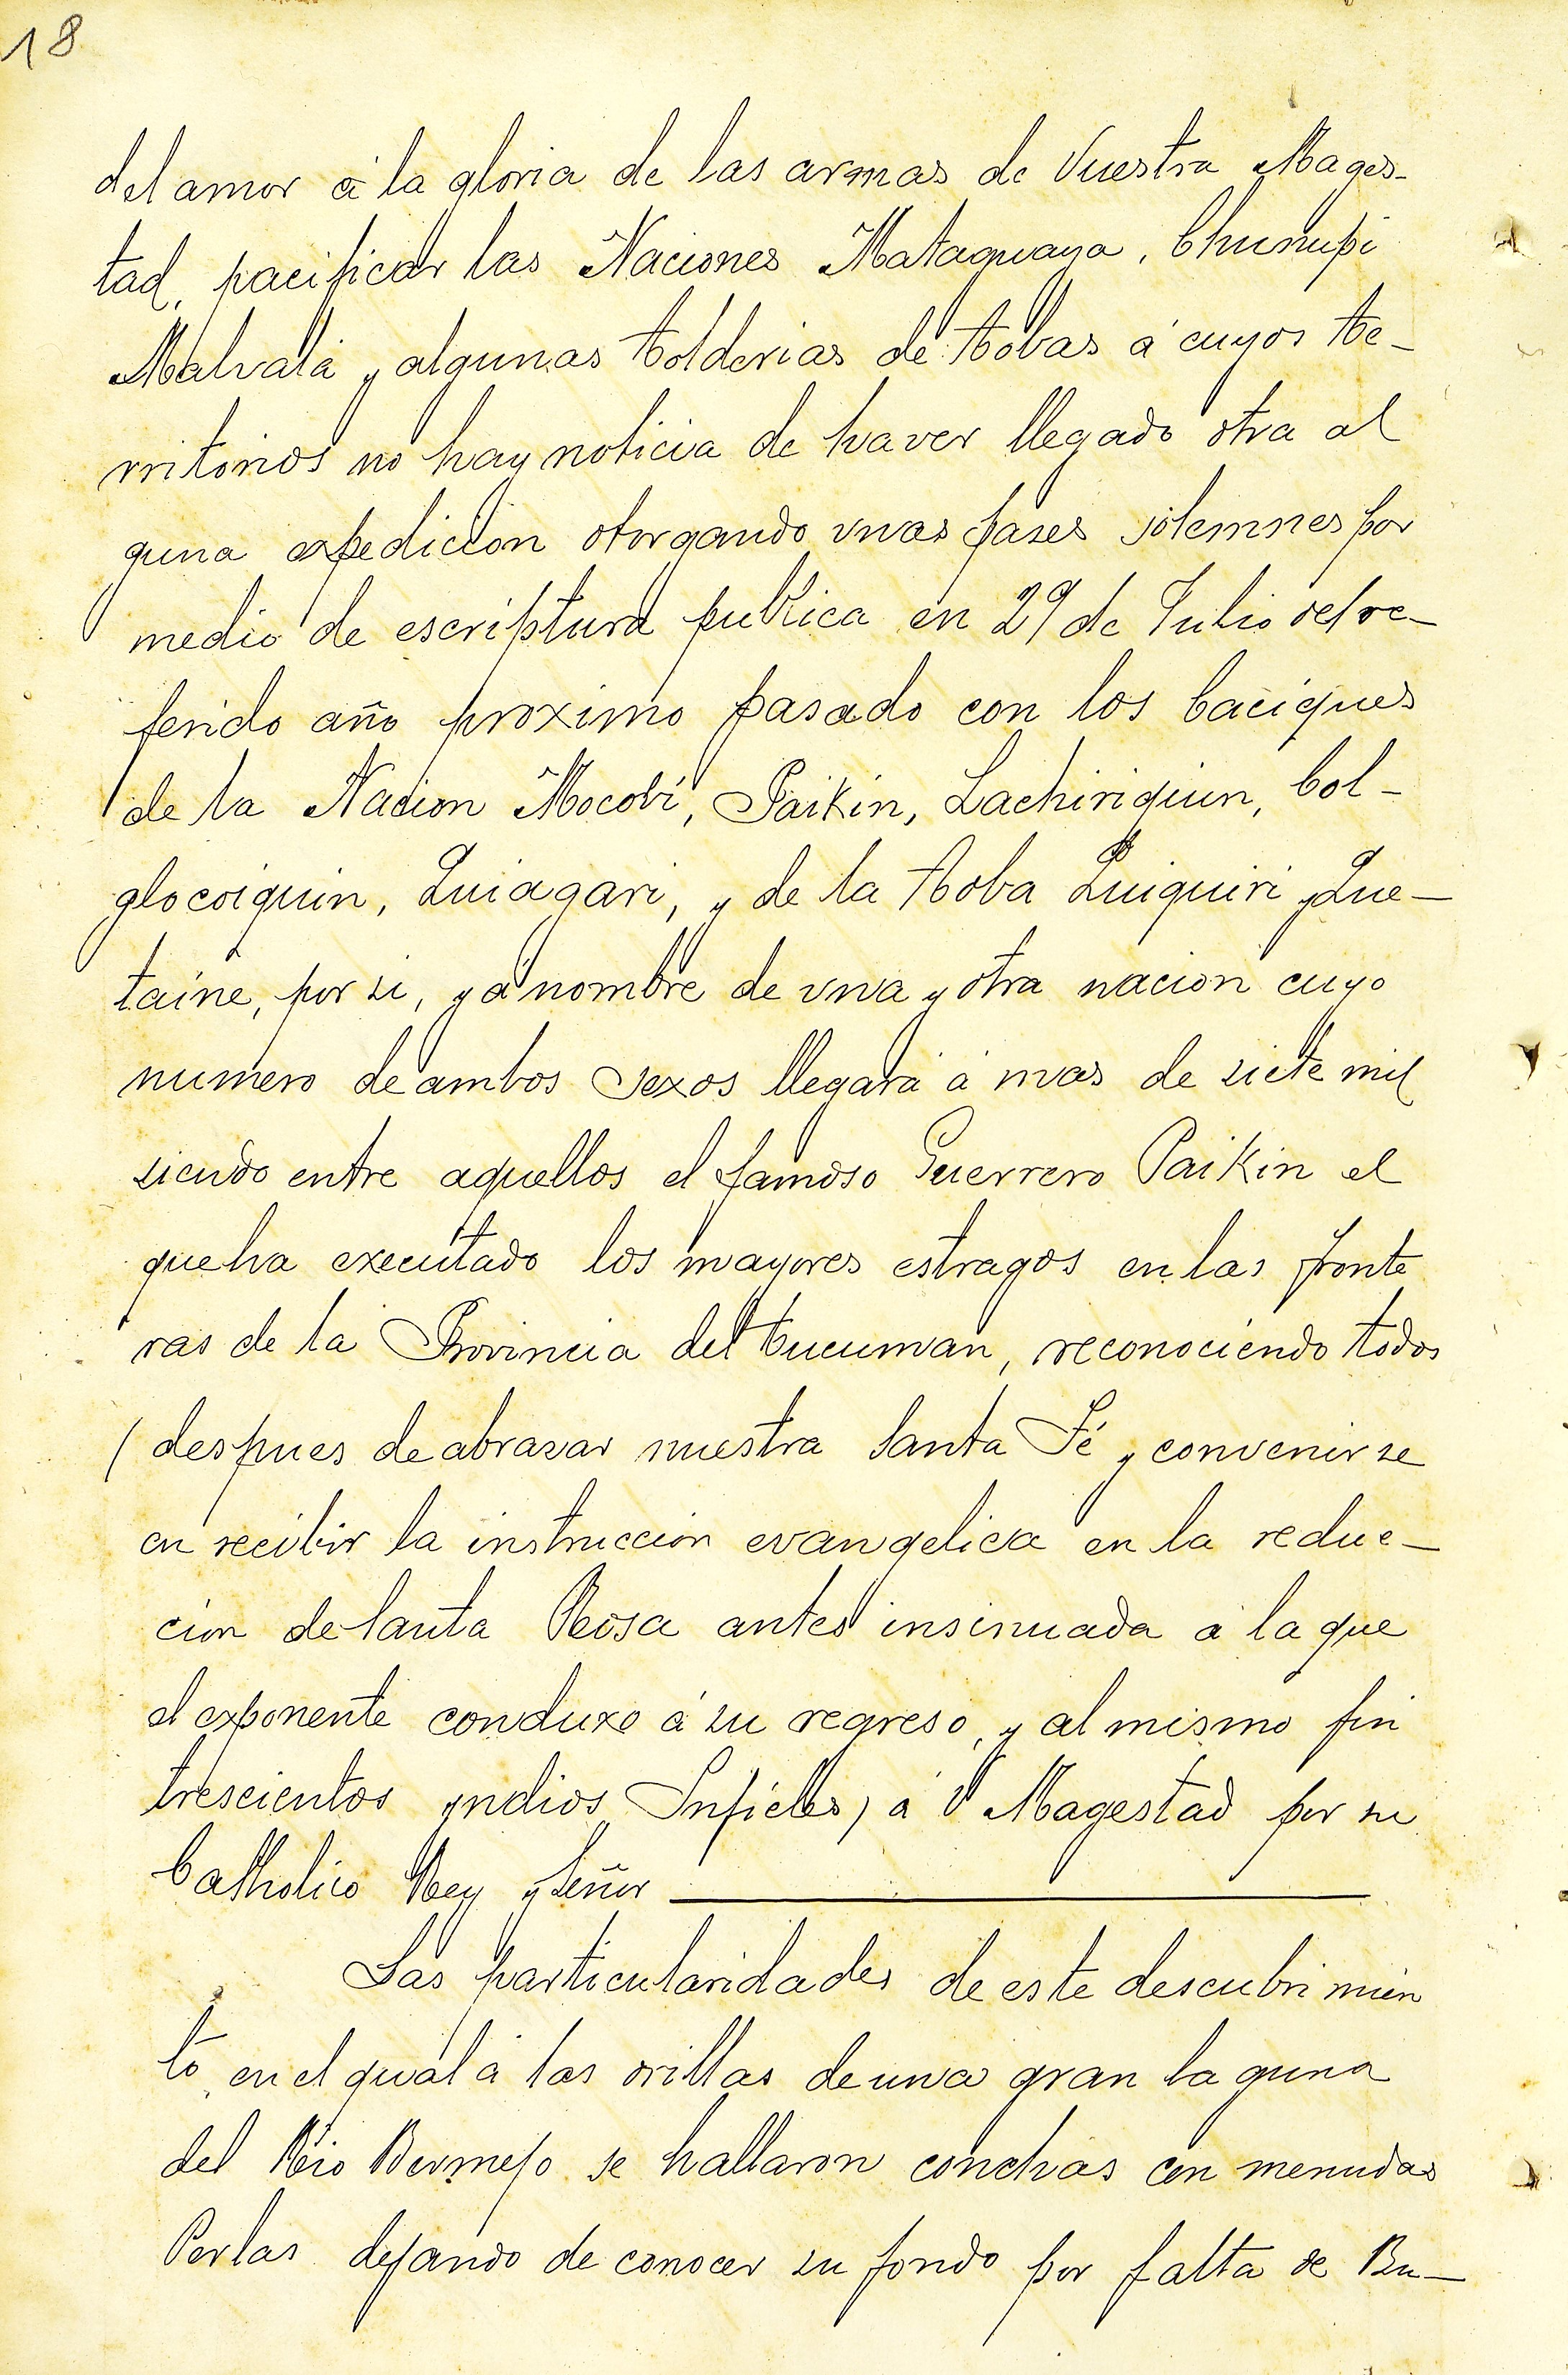 18
del amor á la gloria de las armas de Vuestra Mages-
tad, pacificar las Naciones Mataguaya, Chunupi
Malvalá y algunas tolderias de tobas á cuyos te-
rritorios no hay noticia de haver llegado otra al
guna expedicion otorgando unas pases solemnes por
medio de escriptura publica en 29 de Julio del re-
ferido año proximo pasado con los Caciques
de la Nacion Mocobí, Paikin, Lachiriquin, Col-
glocoiquin, Quiagari, y de la toba Quiquiri y Que-
taine, por si, y á nombre de una y otra nacion cuyo
numero de ambos sexos llegará á mas de siete mil
siendo entre aquellos el famoso Guerrero Paikin el
que ha executado los mayores estragos en las fronte
ras de la Provincia del tucuman, reconociendo todos
(despues de abrasar nuestra Santa Fé y convenirse
en recibir la instruccion evangelica en la reduc-
cion de Santa Rosa antes insinuada á la que
el exponente conduxo á su regreso, y al mismo fin
trescientos yndios Infieles) á V Magestad por su
Catholico Rey y Señor
Las particularidades de este descubrimien
to en el qual á las orillas de una gran laguna
del Rio Bermejo se hallaron conchas con menudas
Perlas dejando de conocer su fondo por falta de Bu-